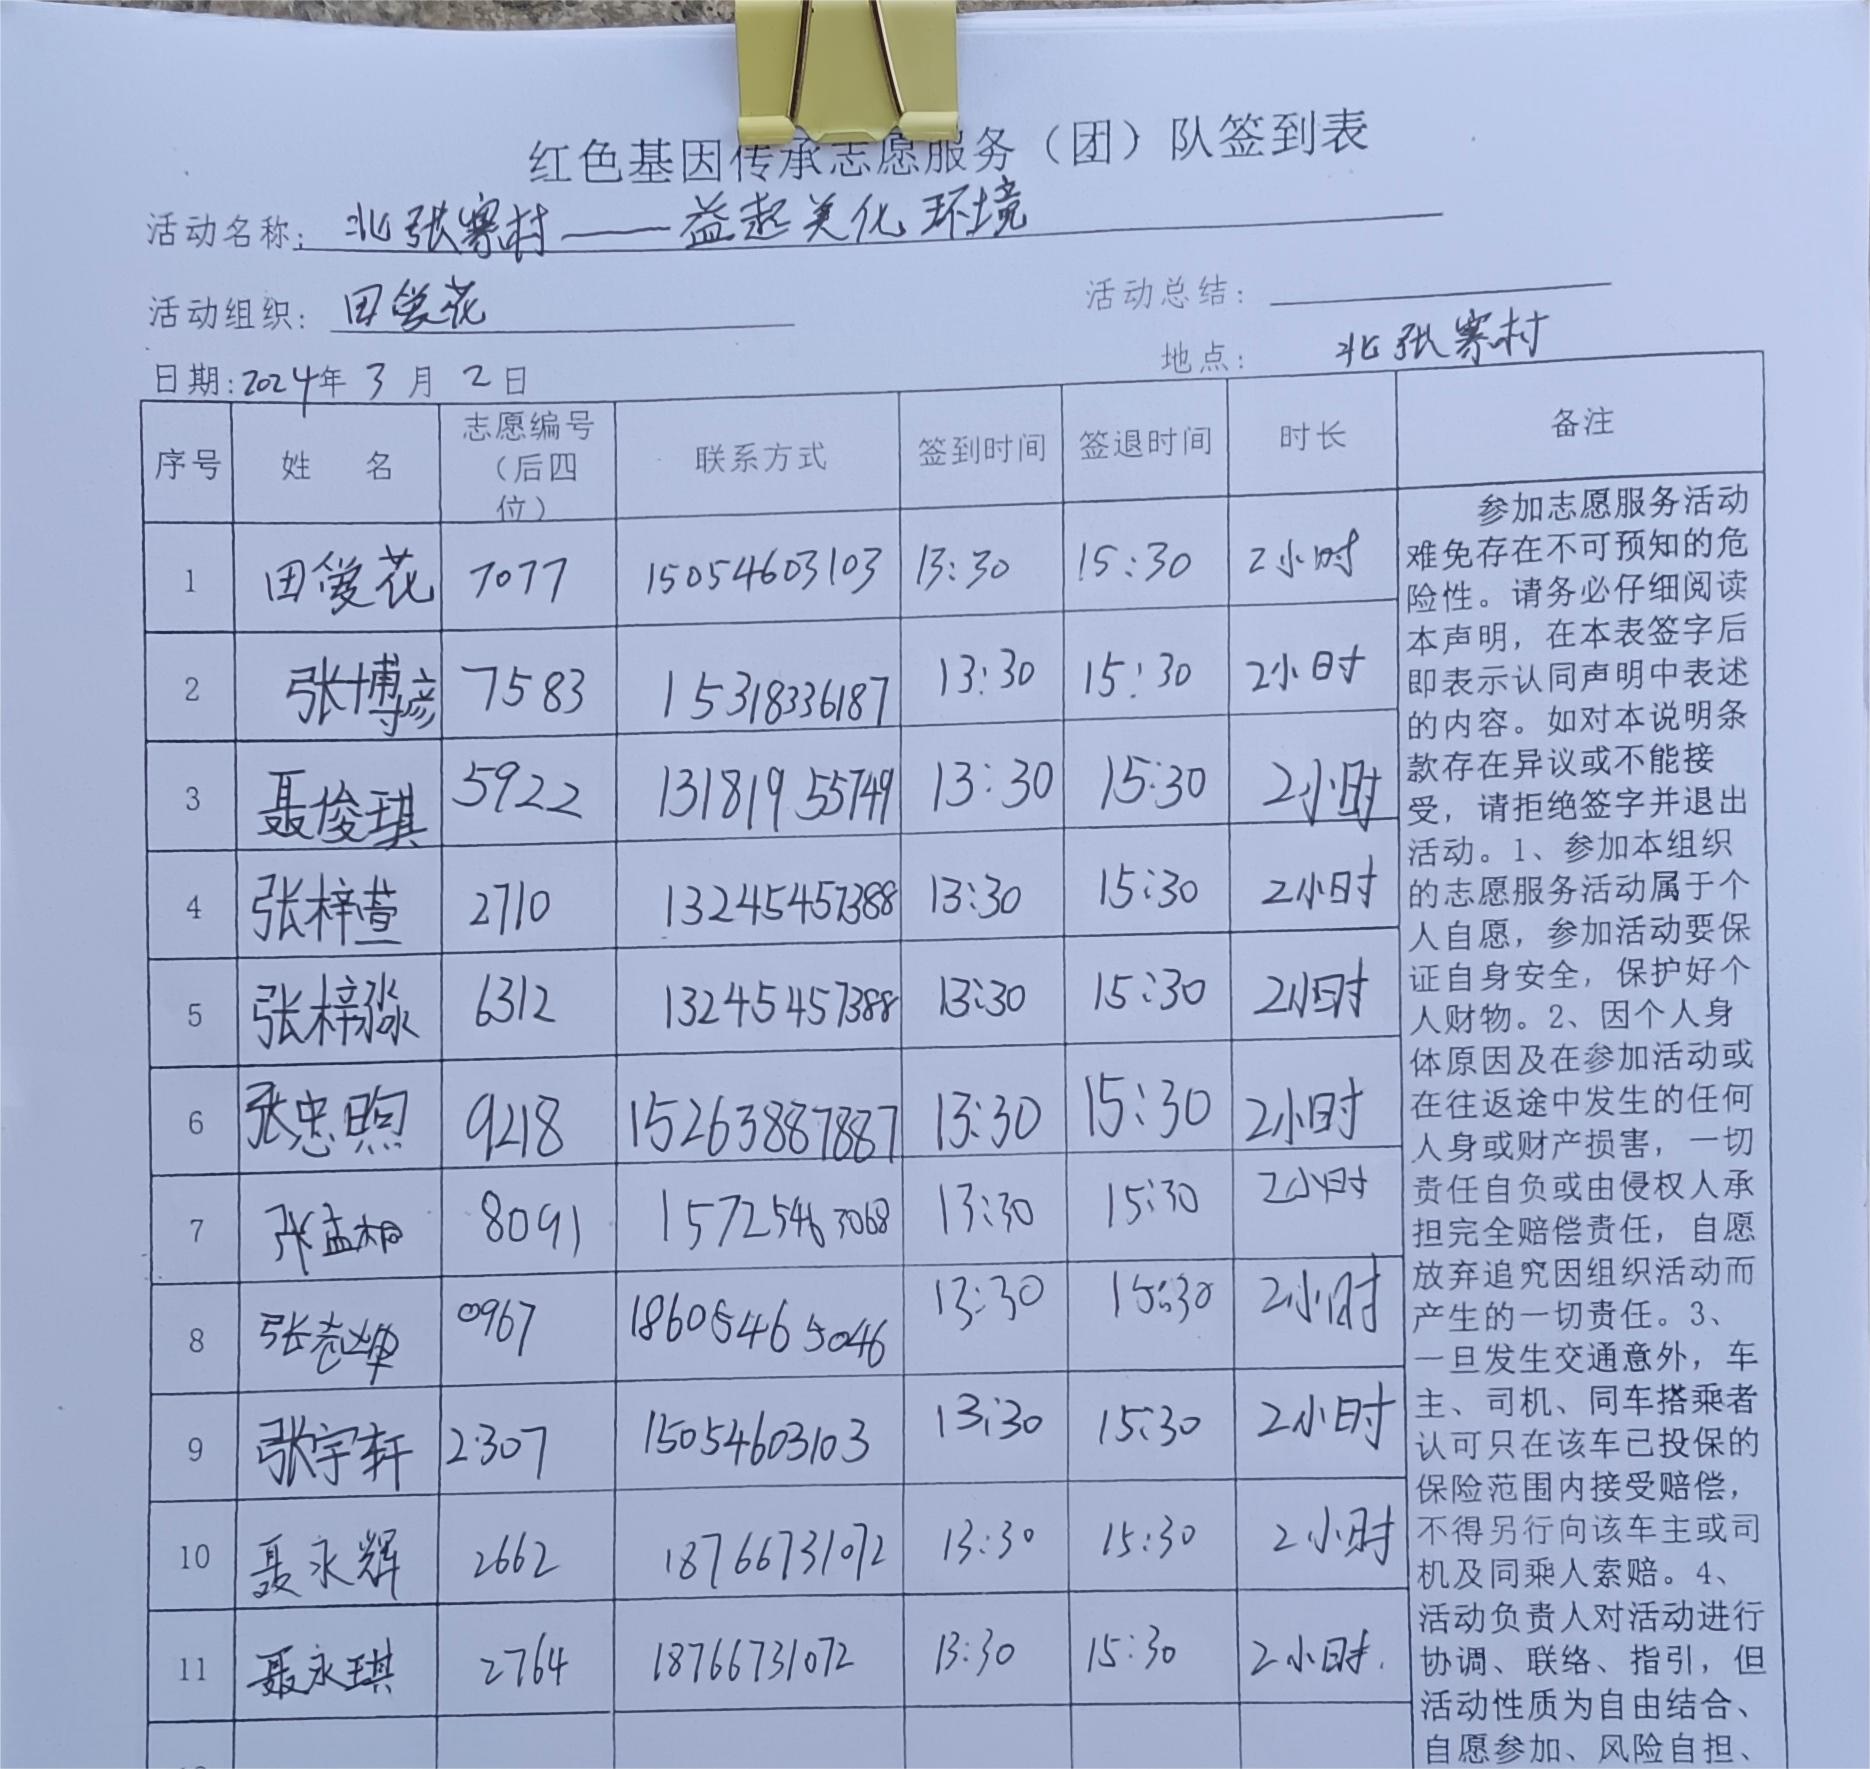 红色基因传承志愿服务（团）队签到表
活动名称：北张寨村——益起美化环境
活动组织：田爱花 活动总结：
日期：2024年3月2日 地点：北张寨村
序号 姓名 志愿编号（后四位） 联系方式 签到时间 签退时间 时长 备注
1 田爱花 7077 15054603103 13:30 15:30 2小时
2 张博彦 7583 15318336187 13:30 15:30 2小时
3 聂俊琪 5922 13181955749 13:30 15:30 2小时
4 张梓萱 2710 13245457388 13:30 15:30 2小时
5 张梓淼 6312 13245457388 13:30 15:30 2小时
6 张忠煦 9218 15263887887 13:30 15:30 2小时
7 张孟桐 8091 15725463068 13:30 15:30 2小时
8 张 0967 18605465046 13:30 15:30 2小时
9 张宇轩 2307 15054603103 13:30 15:30 2小时
10 聂永辉 2662 18766731072 13:30 15:30 2小时
11 聂永琪 2764 18766731072 13:30 15:30 2小时
参加志愿服务活动
难免存在不可预知的危
险性。请务必仔细阅读
本声明，在本表签字后
即表示认同声明中表述
的内容。如对本说明条
款存在异议或不能接
受，请拒绝签字并退出
活动。1、参加本组织
的志愿服务活动属于个
人自愿，参加活动要保
证自身安全，保护好个
人财物。2、因个人身
体原因及在参加活动或
在往返途中发生的任何
人身或财产损害，一切
责任自负或由侵权人承
担完全赔偿责任，自愿
放弃追究因组织活动而
产生的一切责任。3、
一旦发生交通意外，车
主、司机、同车搭乘者
认可只在该车已投保的
保险范围内接受赔偿，
不得另行向该车主或司
机及同乘人索赔。4、
活动负责人对活动进行
协调、联络、指引，但
活动性质为自由结合、
自愿参加、风险自担、